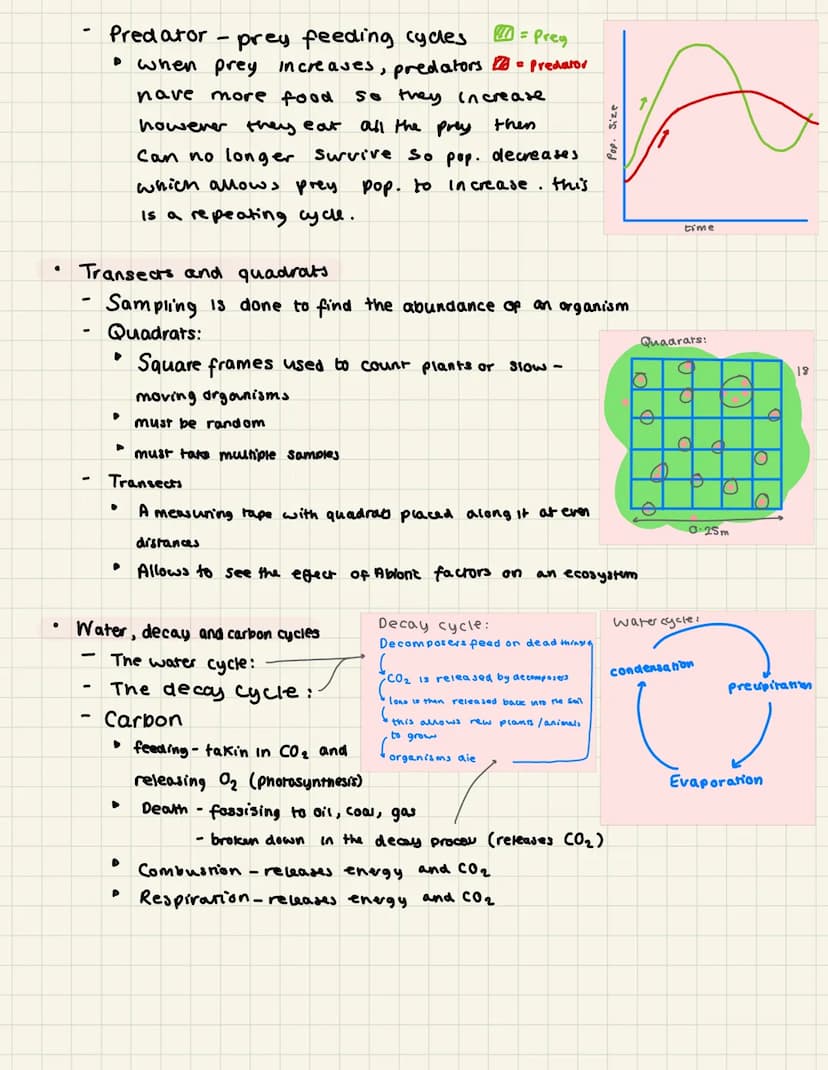 - Predator - prey feeding cycles = Prey
when prey increases, predators = Predator
have more food so they increase
however they eat all the prey then
can no longer survive so pop. decreases
which allows prey pop. to increase. this
is a repeating cycle.
Pop. size
time
• Transects and quadrats
- Sampling is done to find the abundance of an organism
- Quadrats:
Square frames used to count plants or slow-
moving organisms
must be random
must take multiple samples
Quadrats:
18
0.25m
- Transects
A measuring tape with quadrats placed along it at even
distances
Allows to see the effect of Abiotic factors on an ecosystem
• Water, decay and carbon cycles
- The water cycle:
- The decay cycle:
- Carbon
feeding - takin in CO2 and
releasing O2 (photosynthesis)
Death - fossising to oil, coal, gas
- broken down in the decay process (releases CO2)
Combustion - releases energy and CO2
Respiration - releases energy and CO2
Decay cycle:
Decomposers feed on dead things
CO2 is released by decomposers
Ions is then released back into the soil
this allows new plants/animals
to grow
organisms die
Water cycle:
condensation
precipitation
Evaporation